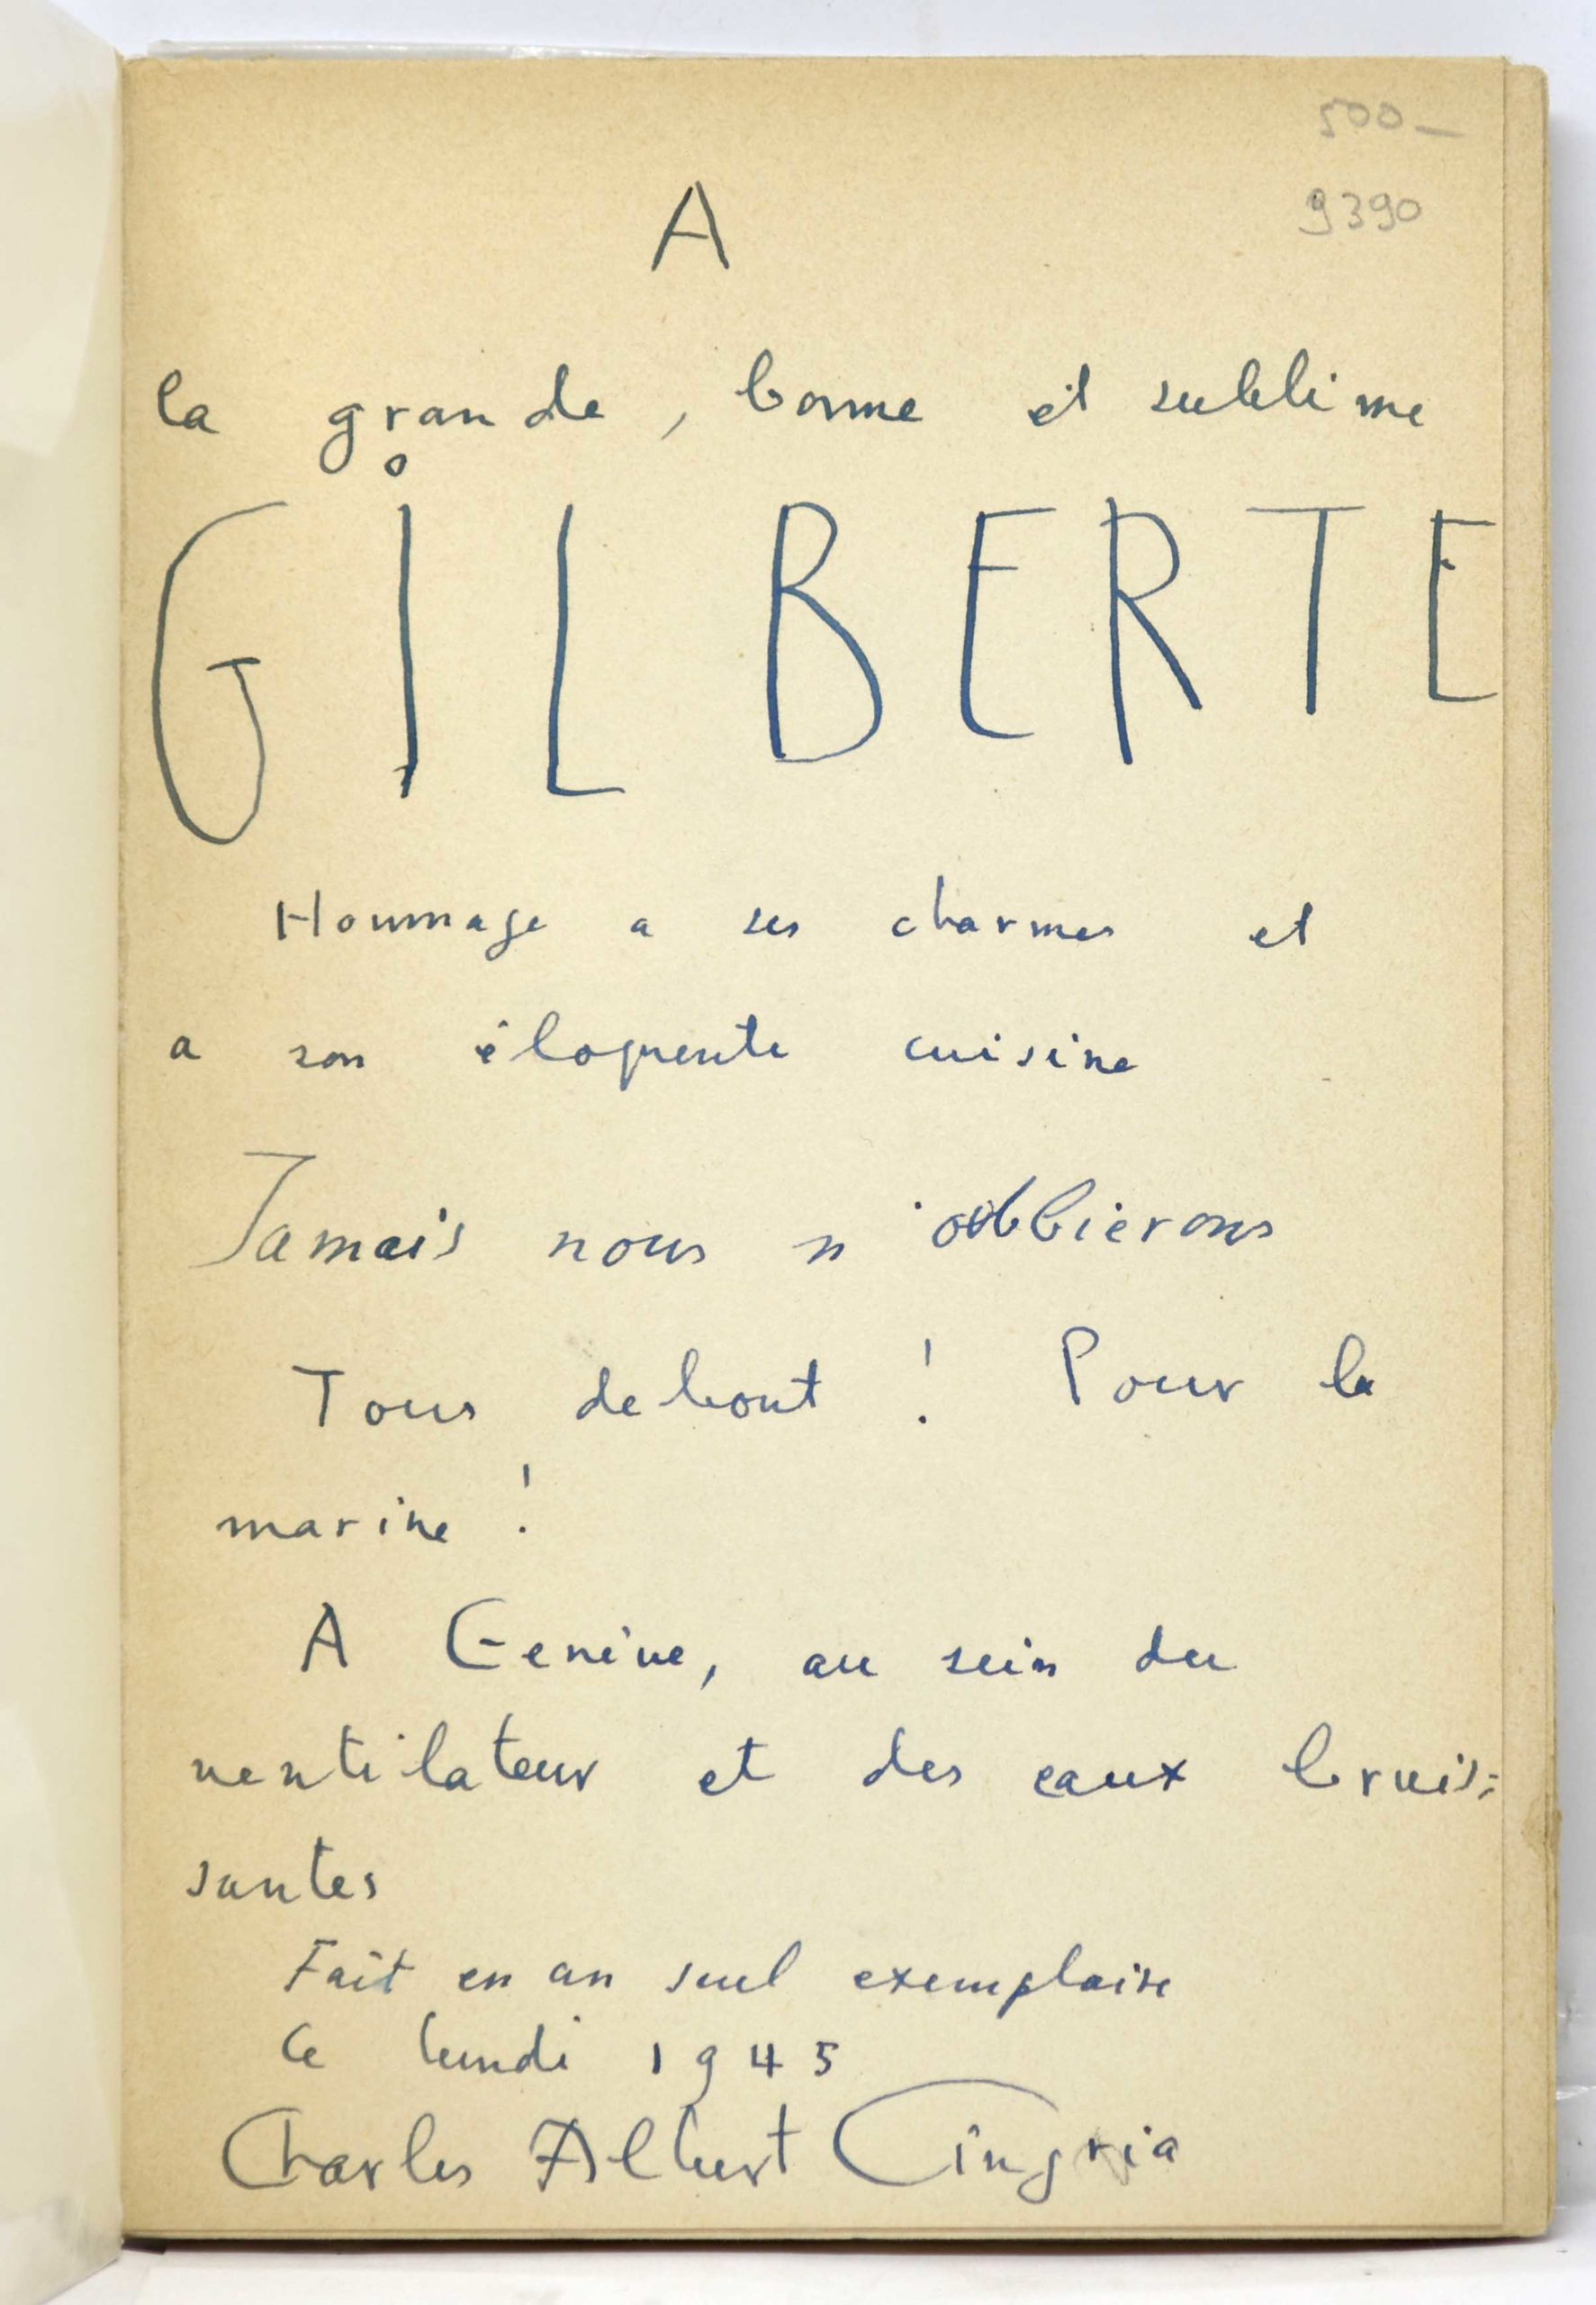 500 –
9390
A
la grande, bonne et sublime
GiLBERTE
Hommage a ses charmes et
a son éloquente cuisine
Jamais nous n'oublierons
Tous debout ! Pour la
marine !
A Genève, au sein du
ventilateur et des eaux bruis-
santes
Fait en un seul exemplaire
Ce lundi 1945
Charles Albert Cingria